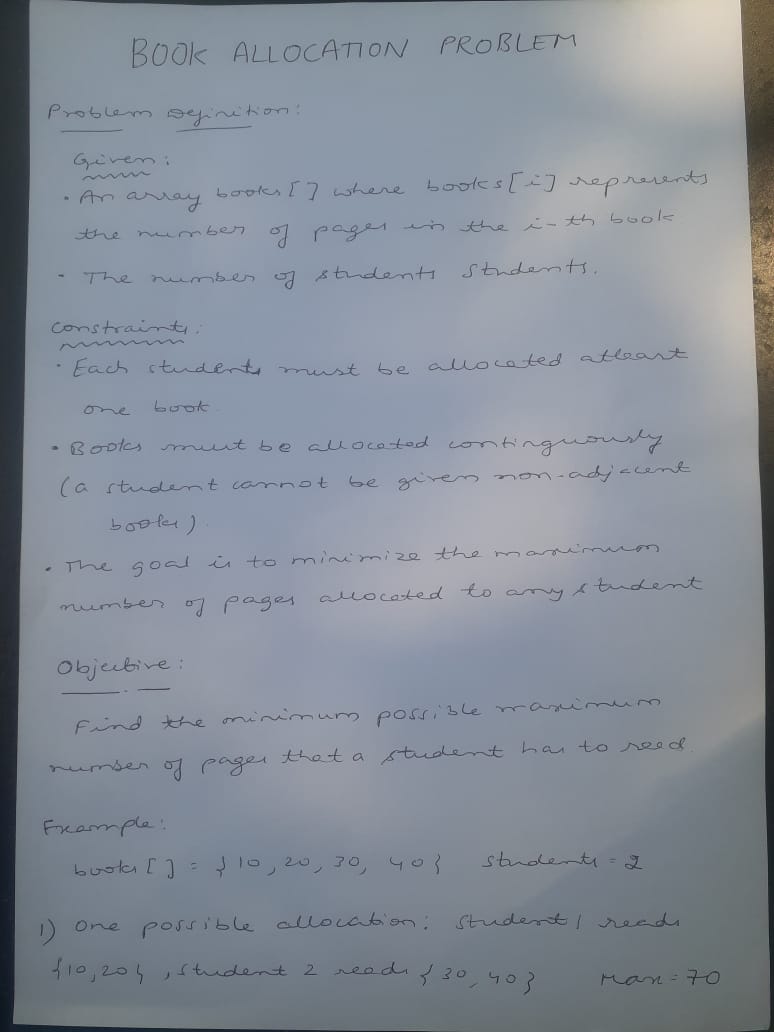 BOOK ALLOCATION PROBLEM
Problem Definition:
Given:
• An array books[] where books[i] represents
the number of pages in the i-th book
- The number of students students.
Constraints:
• Each students must be allocated atleast
one book
• Books must be allocated continguously
(a student cannot be given non-adjacent
books)
• The goal is to minimize the maximum
number of pages allocated to any student
Objective:
Find the minimum possible maximum
number of pages that a student has to read.
Example:
books[] = {10, 20, 30, 40} students = 2
1) One possible allocation: Student 1 reads
{10, 20}, student 2 reads {30, 40} Max = 70